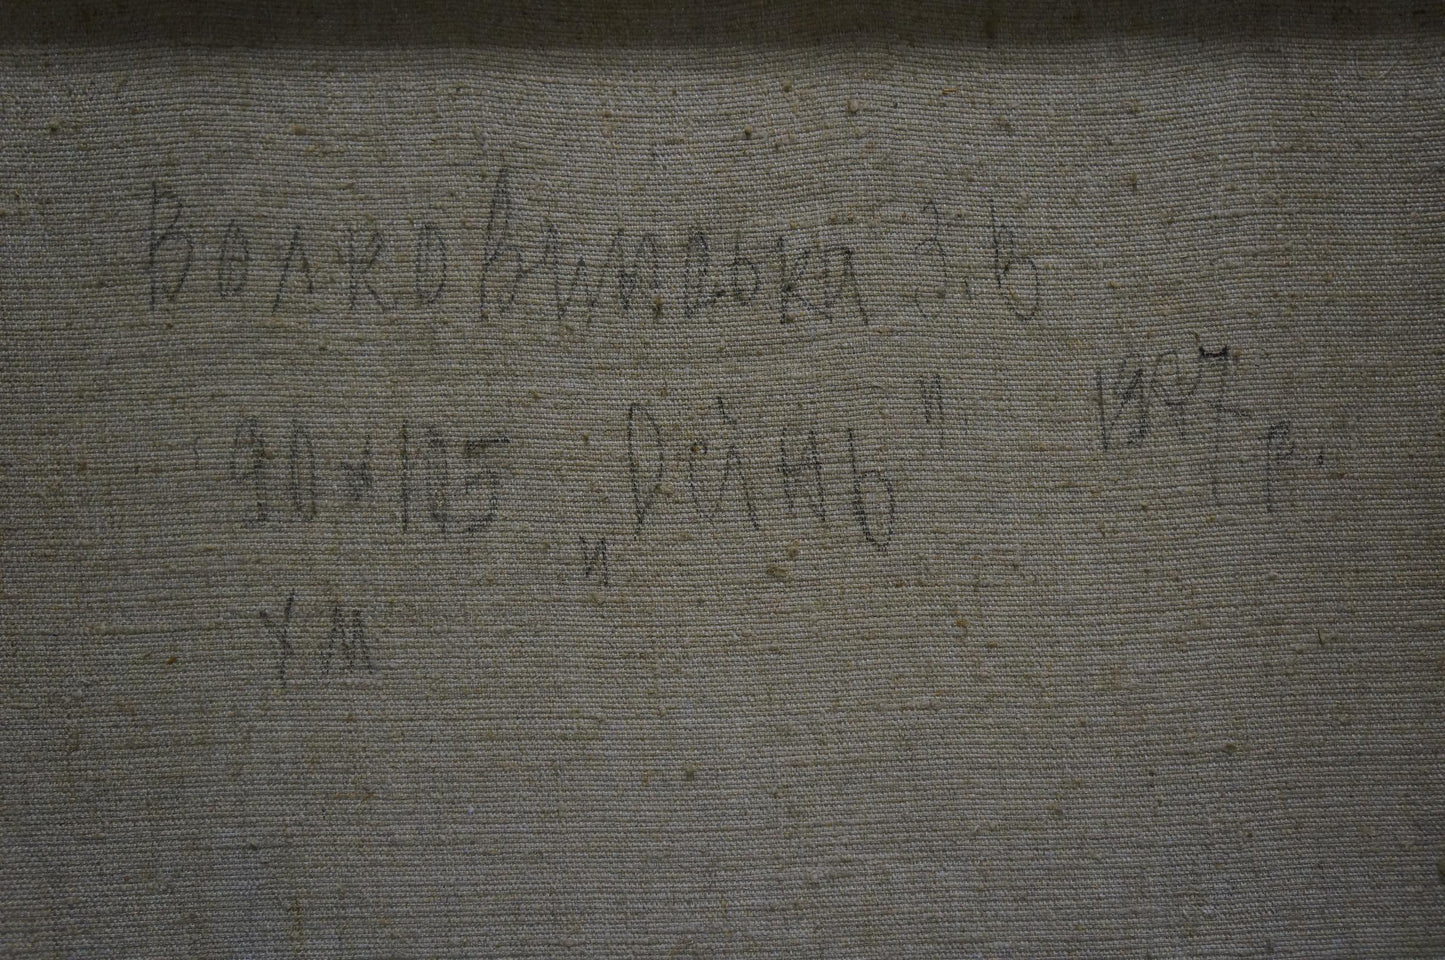 Волковинська З.В
90×105 „Осінь" 1997 р.
х м